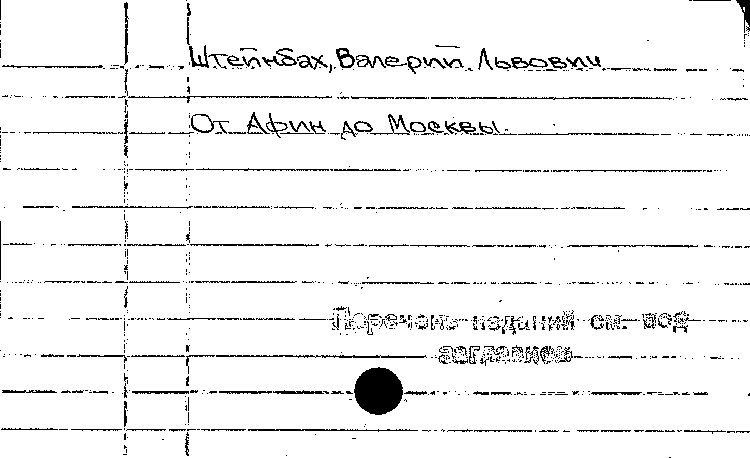 Штейнбах, Валерий Львович
От Афин до Москвы.
Перечень изданий см. под
заглавием